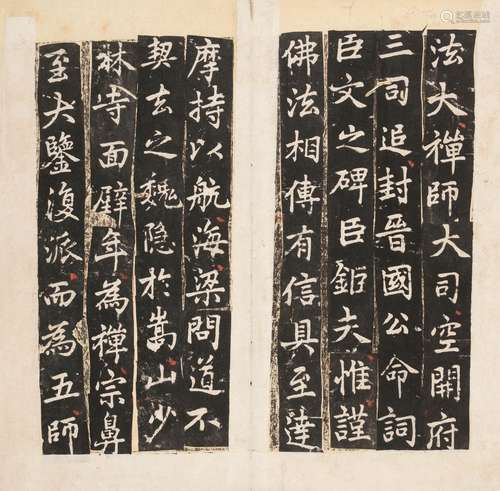 法大禪師大司空開府
三司追封晉國公命詞
臣文之碑臣鉅夫惟謹
佛法相傳有信具至達
摩持以航海梁問道不
契去之魏隐於嵩山少
林寺面壁年為禪宗鼻
至大鑒復派而為五師